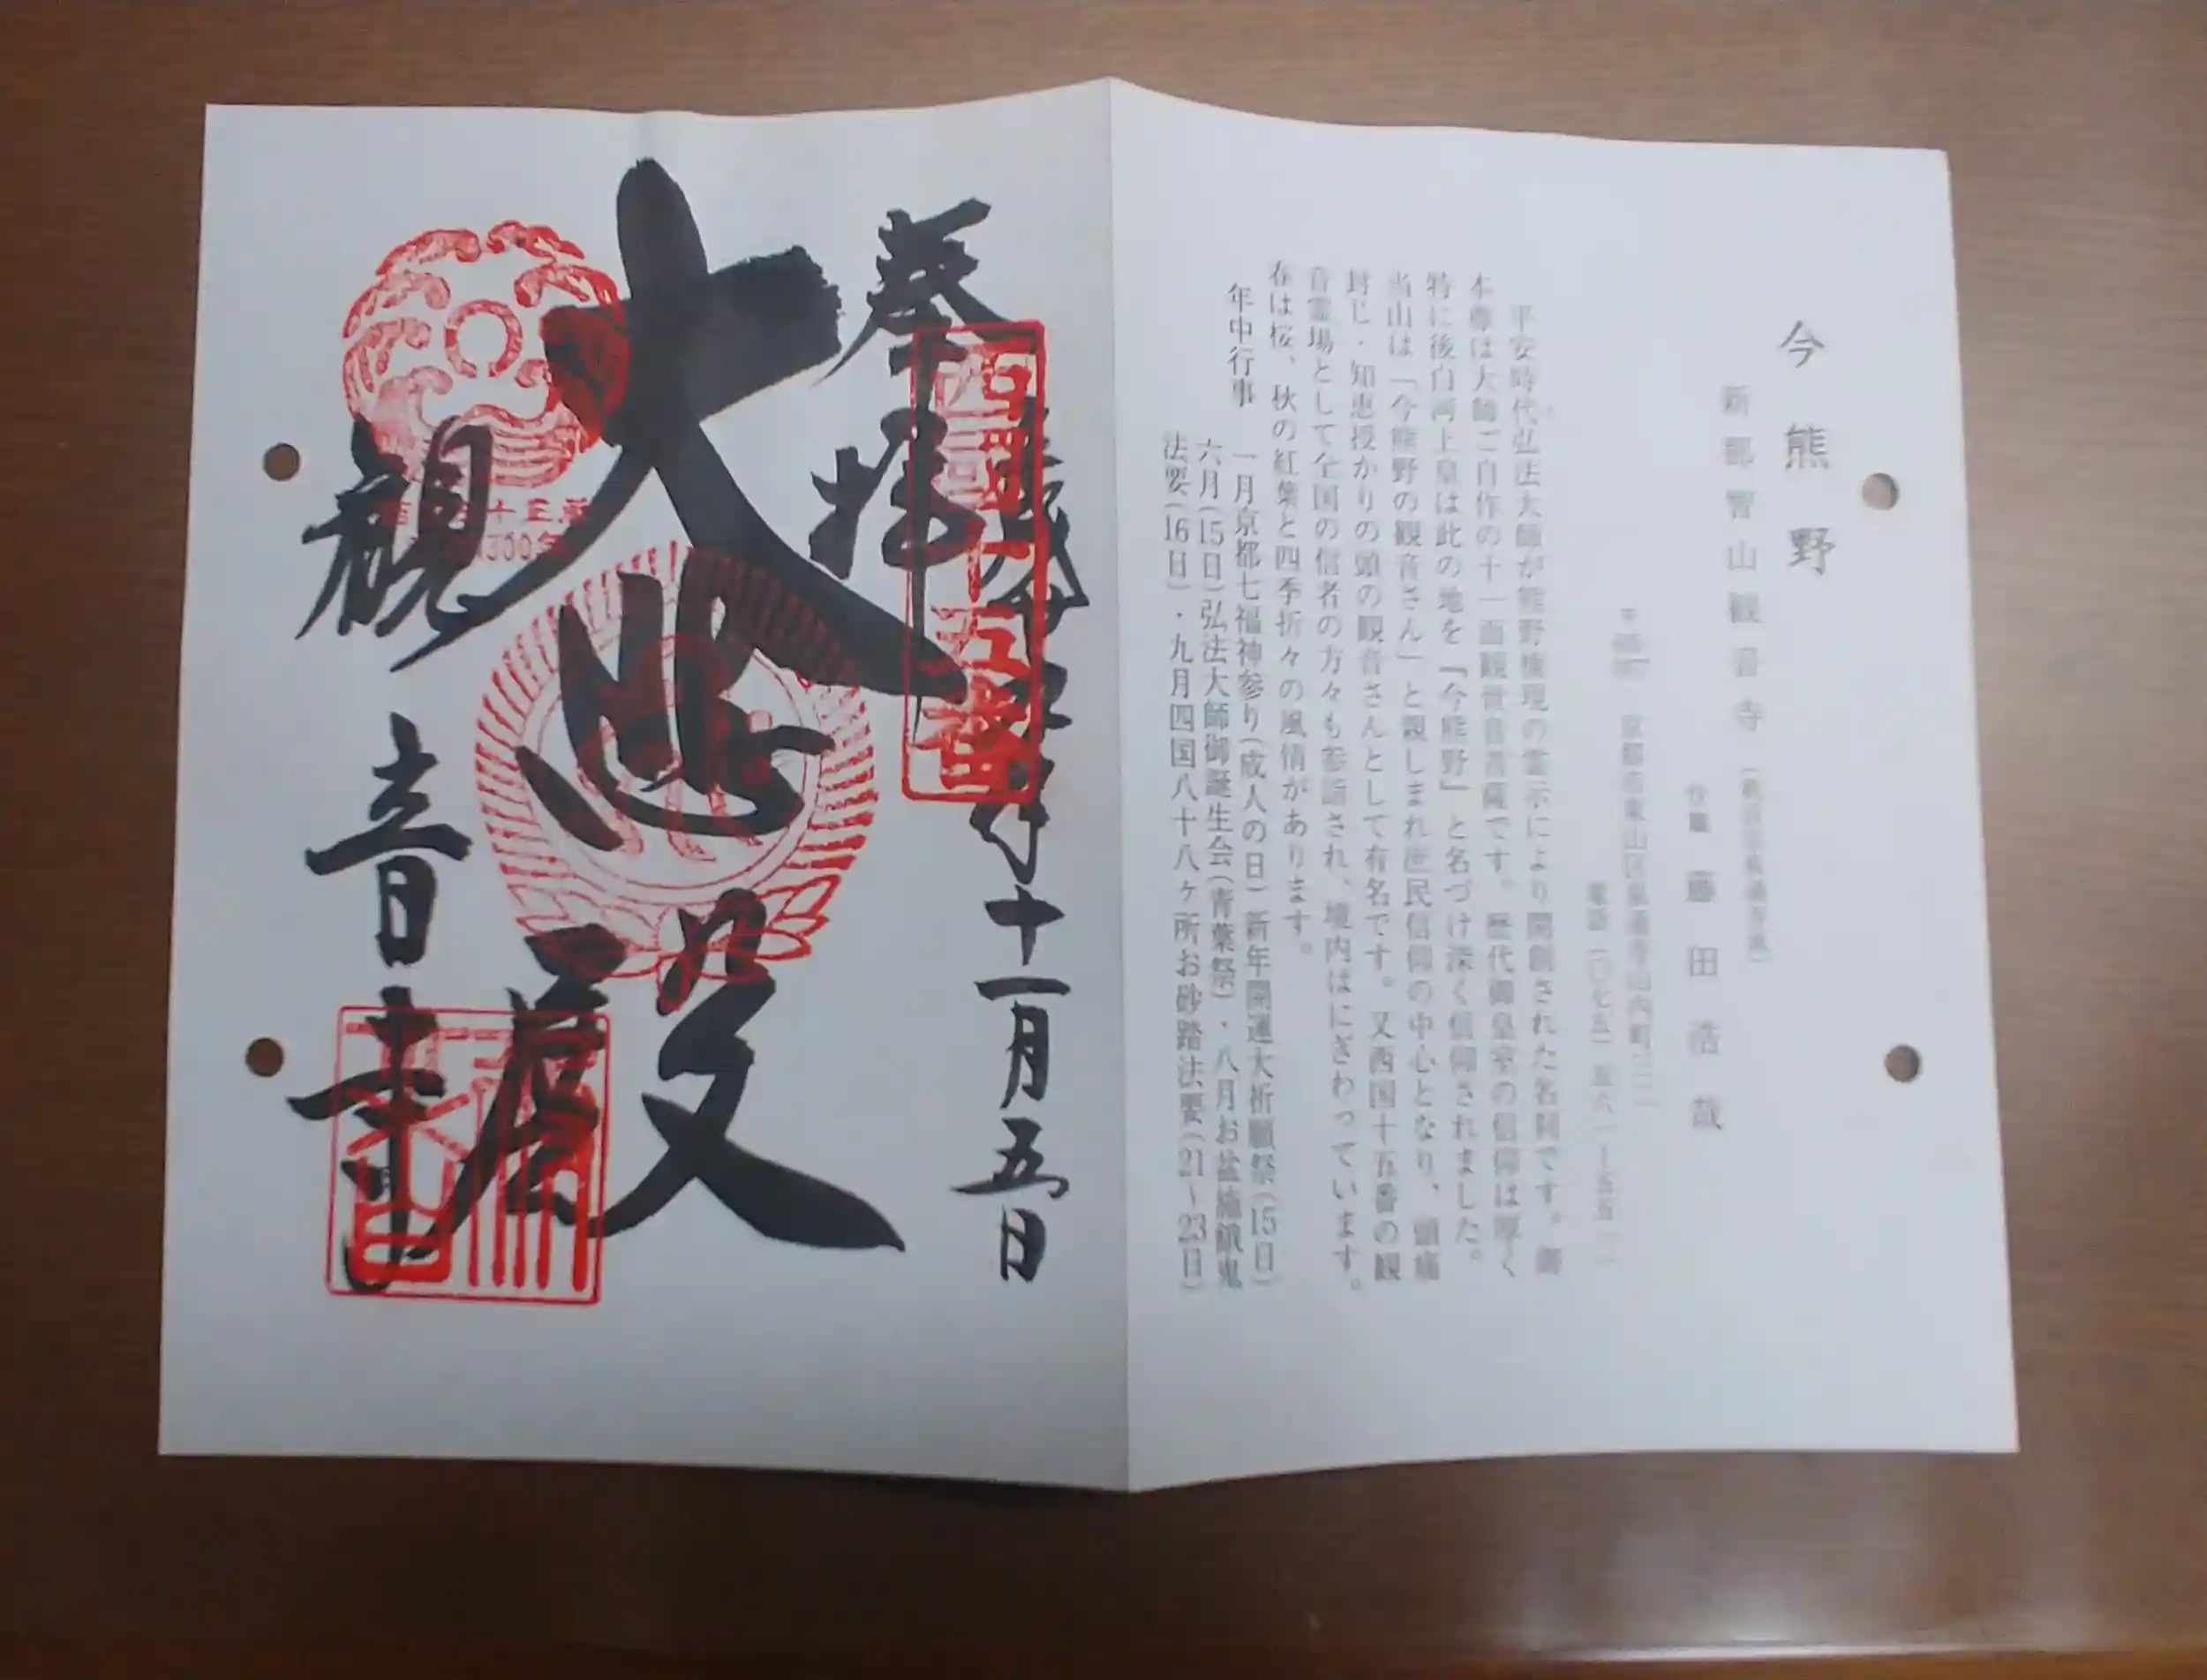 今熊野
新那智山観音寺
住職 藤田浩哉
平安時代弘法大師が熊野権現の霊示により開創された名刹です。御
本尊は大師ご自作の十一面観世音菩薩です。歴代御皇室の信仰は厚く
特に後白河上皇は此の地を『今熊野』と名づけ深く信仰されました。
当山は「今熊野の観音さん」と親しまれ庶民信仰の中心となり、頭痛
封じ・知恵授かりの頭の観音さんとして有名です。又西国十五番の観
音霊場として全国の信者の方々も参詣され、境内はにぎわっています。
春は桜、秋の紅葉と四季折々の風情があります。
年中行事
一月京都七福神参り(成人の日)新年開運大祈願祭(15日)
六月(15日)弘法大師御誕生会(青葉祭)・八月お盆施餓鬼
法要(16日)・九月四国八十八ヶ所お砂踏法要(21〜23日)
奉拝
十一月五日
西国十五番
大悲殿
観音寺